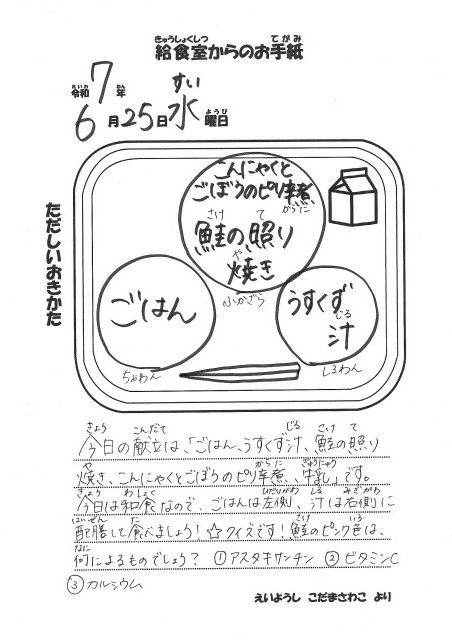 きゅうしょくしつ てがみ
給食室からのお手紙
れいわ ねん すい
令和7年
6月25日水曜日
ようび
ただしいおきかた
こんにゃくと
ごぼうのピリ辛煮
からに
さけ て
鮭の照り
や
焼き
ふかざら
ごはん
ちゃわん
うすくず
じる
汁
しるわん
きょう こんだて じる さけ て
今日の献立は、「ごはん、うすくず汁、鮭の照り
や からに ぎゅうにゅう
焼き、こんにゃくとごぼうのピリ辛煮、牛乳」です。
きょう わしょく ひだりがわ しる みぎがわ
今日は和食なので、ごはんは左側、汁は右側に
はいぜん た さけ いろ
配膳して食べましょう!☆クイズです!鮭のピンク色は、
なに
何によるものでしょう? ①アスタキサンチン ②ビタミンC
③カルシウム
えいようし こだまさわこ より